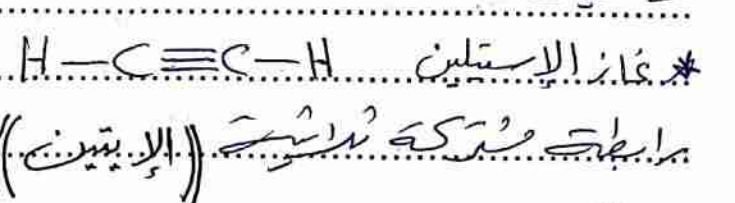 * غاز الإستيلين H—C≡C—H
رابطة مشتركة ثلاثية ((الإيتين))